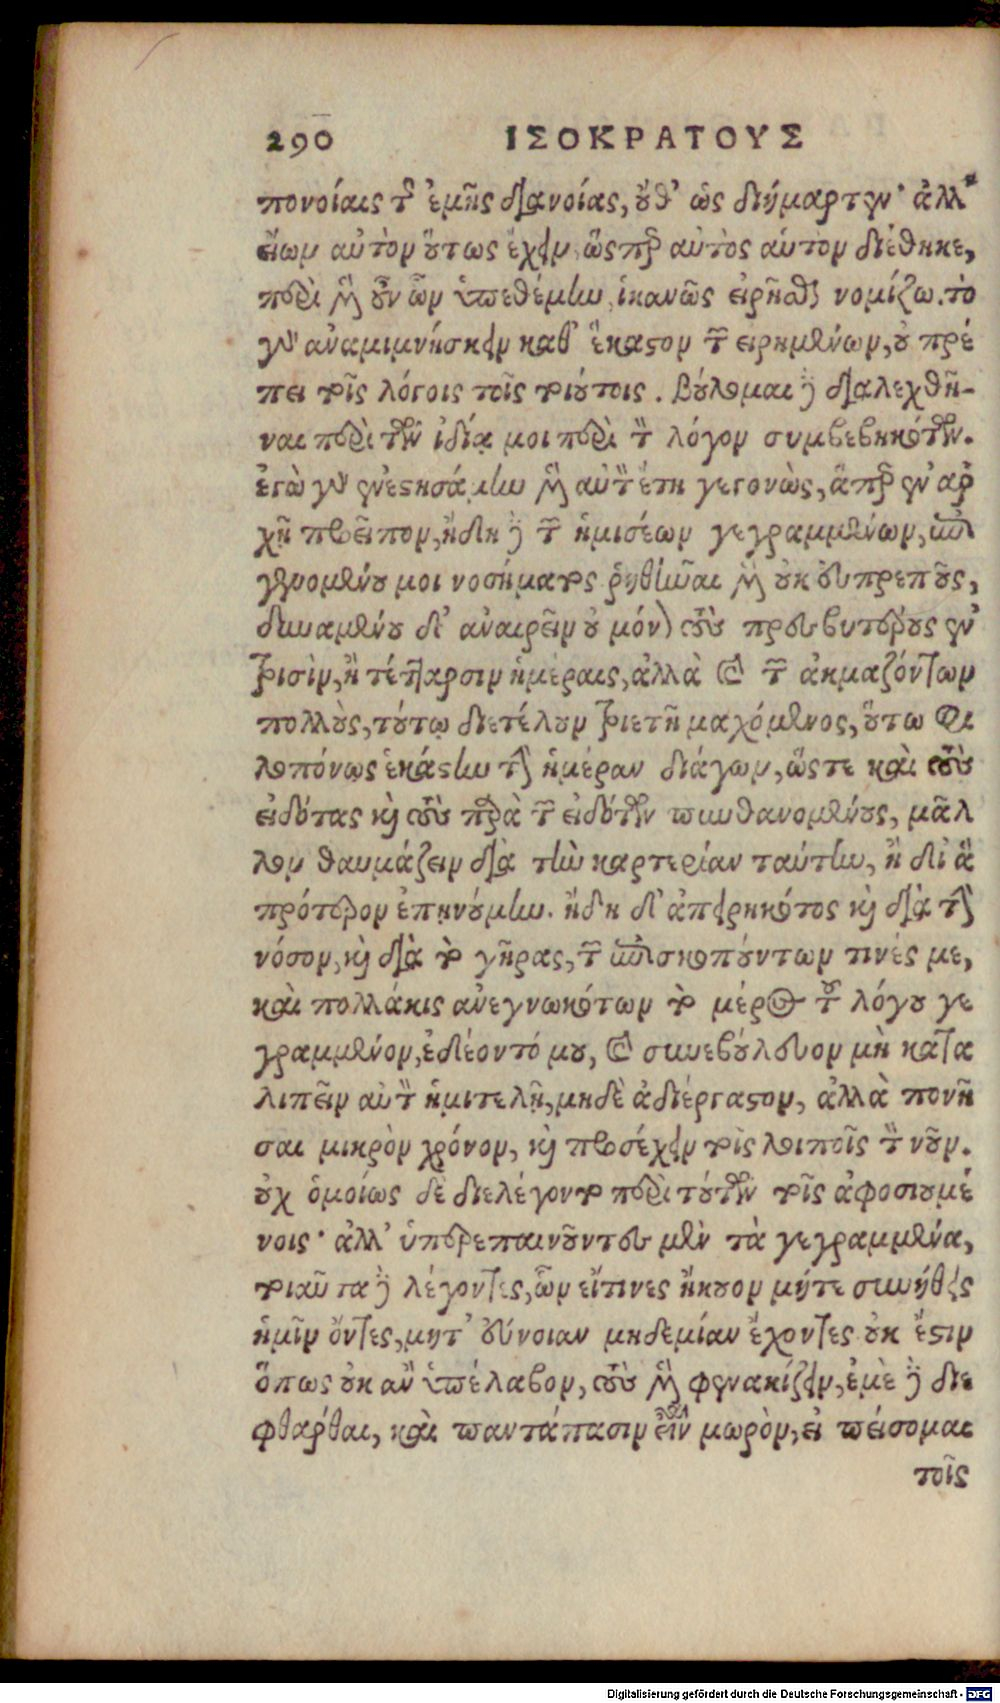 290 ΙΣΟΚΡΑΤΟΥΣ
πονοίαις τῆς ἐμῆς διανοίας, οὔθ' ὡς διήμαρτεν· ἀλλ'
εἴων αὐτὸν οὕτως ἔχειν, ὥσπερ αὐτὸς αὑτὸν διέθηκε,
περὶ μὲν οὖν ὧν ὑπεθέμην, ἱκανῶς εἰρῆσθαι νομίζω. τὸ
γὰρ ἀναμιμνήσκειν καθ' ἕκαστον τῶν εἰρημένων, οὐ πρέ
πει τοῖς λόγοις τοῖς τοιούτοις. βούλομαι δὲ διαλεχθῆ-
ναι περὶ τῶν ἰδίᾳ μοι περὶ τὸν λόγον συμβεβηκότων.
ἐγὼ γὰρ ἐνεστησάμην μὲν αὐτὸν ἔτη γεγονὼς, ἅπερ ἐν ἀρ
χῇ προεῖπον, ἤδη δὲ τῶν ἡμισέων γεγραμμένων, ἐπι
γενομένου μοι νοσήματος ῥηθῆναι μὲν οὐκ εὐπρεποῦς,
δυναμένου δ' ἀναιρεῖν οὐ μόνον τοὺς πρεσβυτέρους ἐν
τρισὶν, ἢ τέτταρσιν ἡμέραις, ἀλλὰ καὶ τῶν ἀκμαζόντων
πολλοὺς, τούτῳ διετέλουν τριετῆ μαχόμενος, οὕτω φι
λοπόνως ἑκάστην τὴν ἡμέραν διάγων, ὥστε καὶ τοὺς
εἰδότας καὶ τοὺς παρὰ τῶν εἰδότων πυνθανομένους, μᾶλ
λον θαυμάζειν διὰ τὴν καρτερίαν ταύτην, ἢ δι' ἃ
πρότερον ἐπῃνούμην. ἤδη δ' ἀπειρηκότος καὶ διὰ τὴν
νόσον, καὶ διὰ τὸ γῆρας, τῶν ἐπισκοπούντων τινές με,
καὶ πολλάκις ἀνεγνωκότων τὸ μέρος τοῦ λόγου γε
γραμμένον, ἐδέοντό μου, καὶ συνεβούλευον μὴ κατα
λιπεῖν αὐτὸν ἡμιτελῆ, μηδὲ ἀδιέργαστον, ἀλλὰ πονῆ
σαι μικρὸν χρόνον, καὶ προσέχειν τοῖς λοιποῖς τὸν νοῦν.
οὐχ ὁμοίως δὲ διελέγοντο περὶ τούτων τοῖς ἀφοσιουμέ
νοις· ἀλλ' ὑπερεπαινοῦντες μὲν τὰ γεγραμμένα,
τοιαῦτα δὲ λέγοντες, ὧν εἴ τινες ἤκουον μήτε συνήθεις
ἡμῖν ὄντες, μήτ' εὔνοιαν μηδεμίαν ἔχοντες οὐκ ἔστιν
ὅπως οὐκ ἂν ὑπέλαβον, τοὺς μὲν φενακίζειν, ἐμὲ δὲ διε
φθάρθαι, καὶ παντάπασιν εἶναι μωρὸν, εἰ πείσομαι
τοῖς
Digitalisierung gefördert durch die Deutsche Forschungsgemeinschaft - DFG